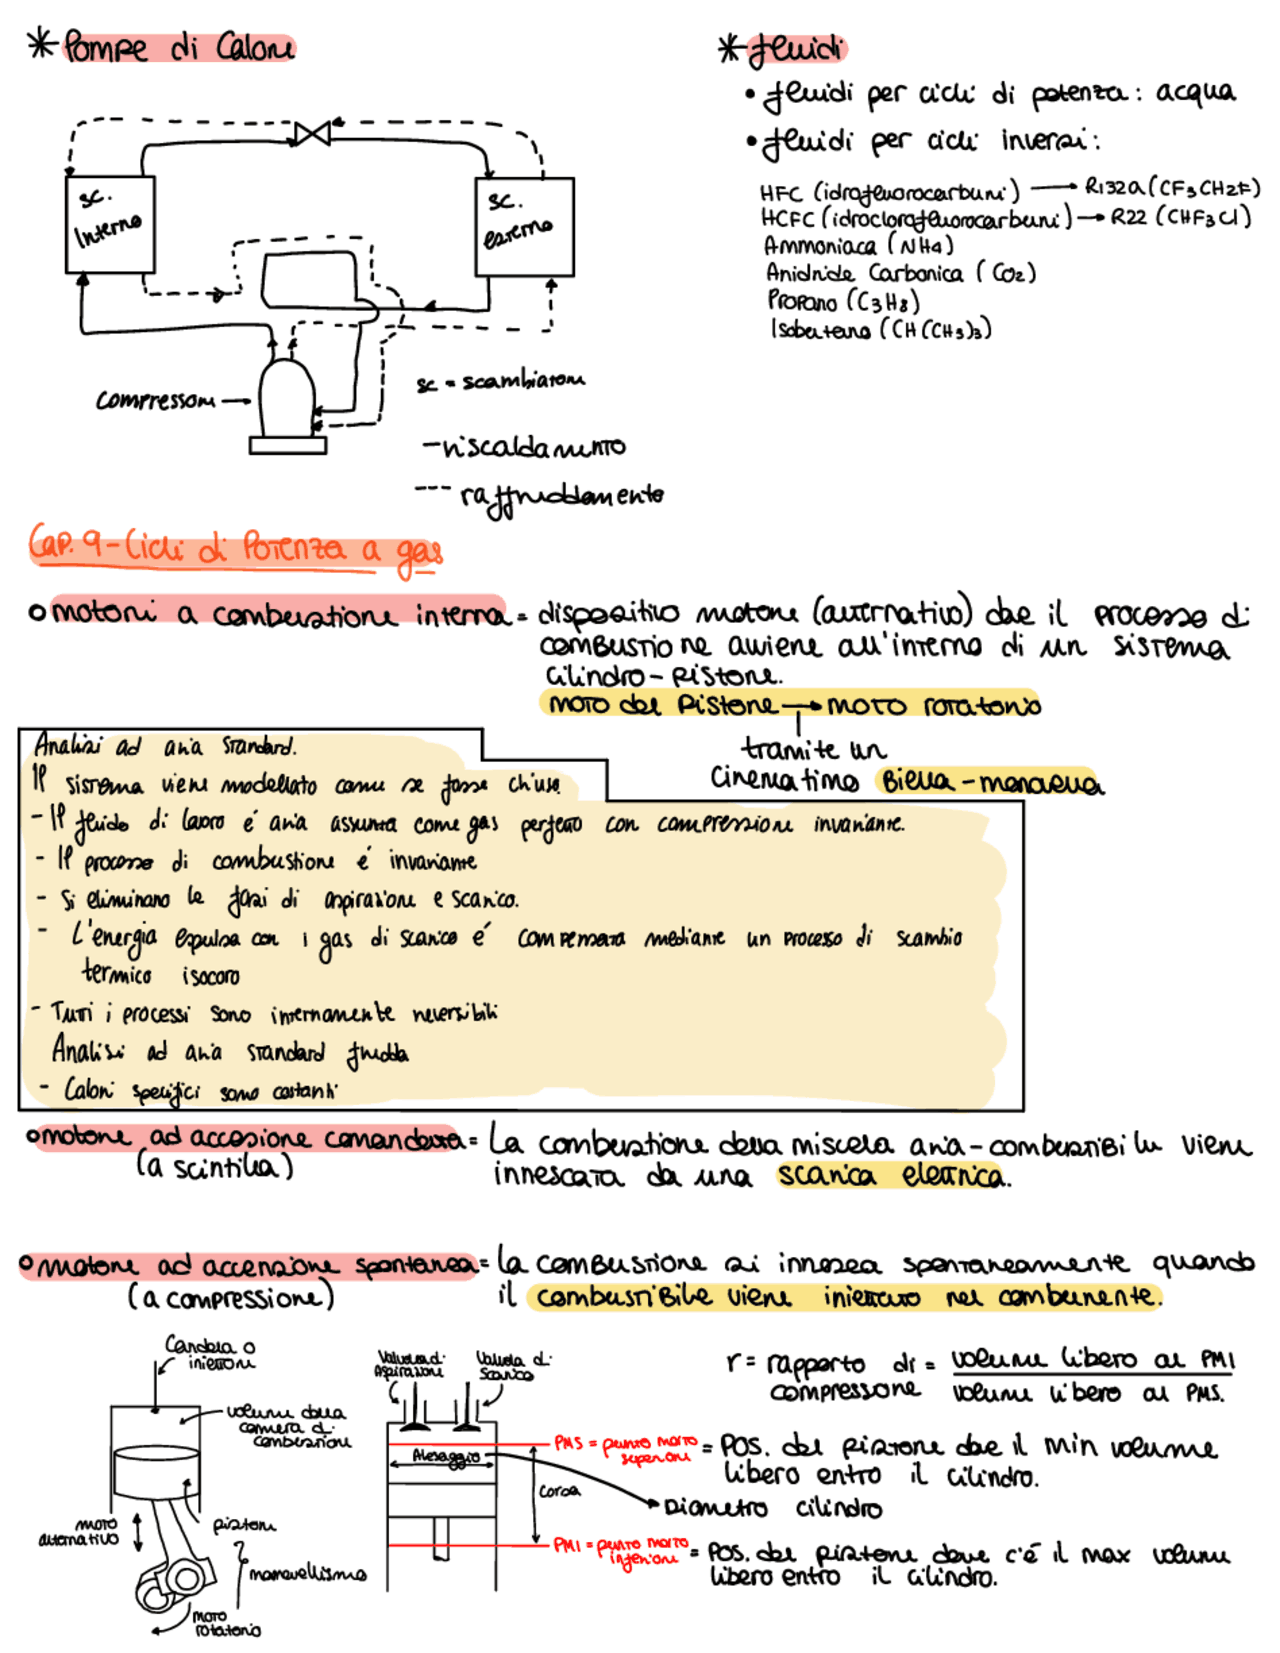 * Pompe di Calore
sc.
Interno
sc.
esterno
compressore
sc = scambiatore
- riscaldamento
--- raffreddamento
* fluidi
• fluidi per cicli di potenza: acqua
• fluidi per cicli inversi:
HFC (idrofluorocarburi) → R132a (CF3CH2F)
HCFC (idroclorofluorocarburi) → R22 (CHF3Cl)
Ammoniaca (NH4)
Anidride Carbonica (CO2)
Propano (C3H8)
Isobutano (CH(CH3)3)
Cap. 9 - Cicli di Potenza a gas
o motori a combustione interna = dispositivo motore (alternativo) dove il processo di
combustione avviene all'interno di un sistema
cilindro-pistone.
moto del pistone → moto rotatorio
tramite un
cinematismo Biella-manovella
Analisi ad aria standard.
Il sistema viene modellato come se fosse chiuso.
- Il fluido di lavoro é aria assunta come gas perfetto con compressione invariante.
- Il processo di combustione é invariante
- Si eliminano le fasi di aspirazione e scarico.
- L'energia espulsa con i gas di scarico é compensata mediante un processo di scambio
termico isocoro
- Tutti i processi sono internamente reversibili
Analisi ad aria standard fredda
- Calori specifici sono costanti
o motore ad accesione comandata = La combustione della miscela aria-combustibile viene
(a scintilla)
innescata da una scarica elettrica.
o motore ad accensione spontanea = la combustione si innesca spontaneamente quando
(a compressione)
il combustibile viene iniettato nel comburente.
Candela o
iniettore
volume della
camera di
combustione
moto
alternativo
pistone
manovellismo
moto
rotatorio
Valvola di
Aspirazione
Valvola di
Scarico
Alesaggio
Corsa
Diametro cilindro
r = rapporto di compressone = volume libero al PMI
volume libero al PMS.
PMS = punto morto
superiore
= Pos. del pistone dove il min volume
libero entro il cilindro.
PMI = punto morto
inferiore
= Pos. del pistone dove c'é il max volume
libero entro il cilindro.